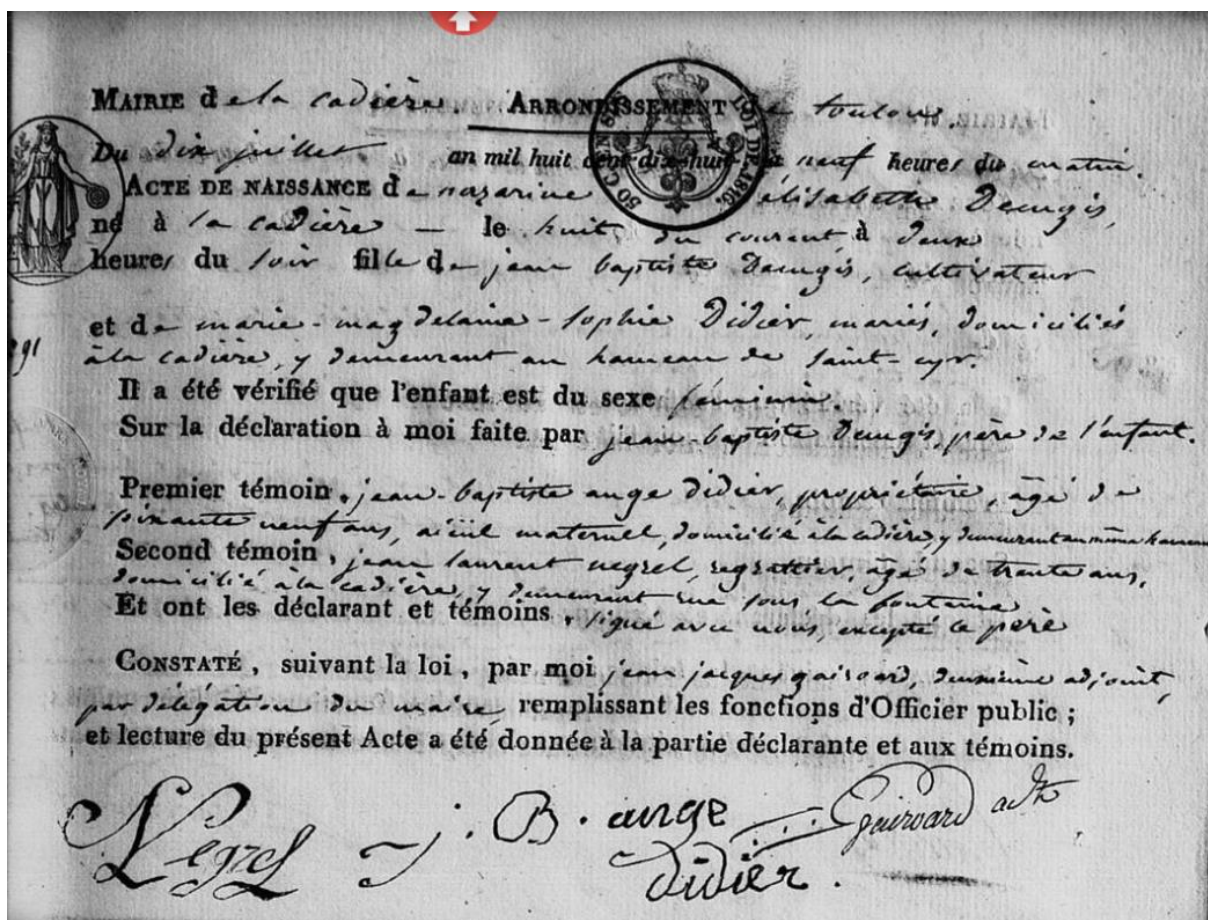 MAIRIE de la cadière. ARRONDISSEMENT de toulon.
Du dix juillet an mil huit cent dix-huit à neuf heures du matin.
ACTE DE NAISSANCE de nazarine élisabeth
né à la cadière – le huit du courant, à deux
heures du soir fille de jean baptiste cultivateur
et de marie-magdelaine-sophie Didier, mariés, domiciliés
à la cadière, y demeurant au hameau de saint-cyr.
91
Il a été vérifié que l'enfant est du sexe féminin.
Sur la déclaration à moi faite par jean-baptiste père de l'enfant.
Premier témoin, jean-baptiste ange didier, propriétaire, âgé de
neuf ans, aïeul maternel, domicilié à la cadière, y demeurant au même hameau
Second témoin, jean laurent negrel, regrattier, âgé de trente ans,
domicilié à la cadière, y demeurant rue sous la fontaine
Et ont les déclarant et témoins, signé avec nous, excepté le père
CONSTATÉ, suivant la loi, par moi jean jacques gairoard, deuxième adjoint,
par délégation du maire, remplissant les fonctions d'Officier public ;
et lecture du présent Acte a été donnée à la partie déclarante et aux témoins.
Negrel j. B. ange Gairoard adt
didier.
50 CEN. LOI DE 1816.